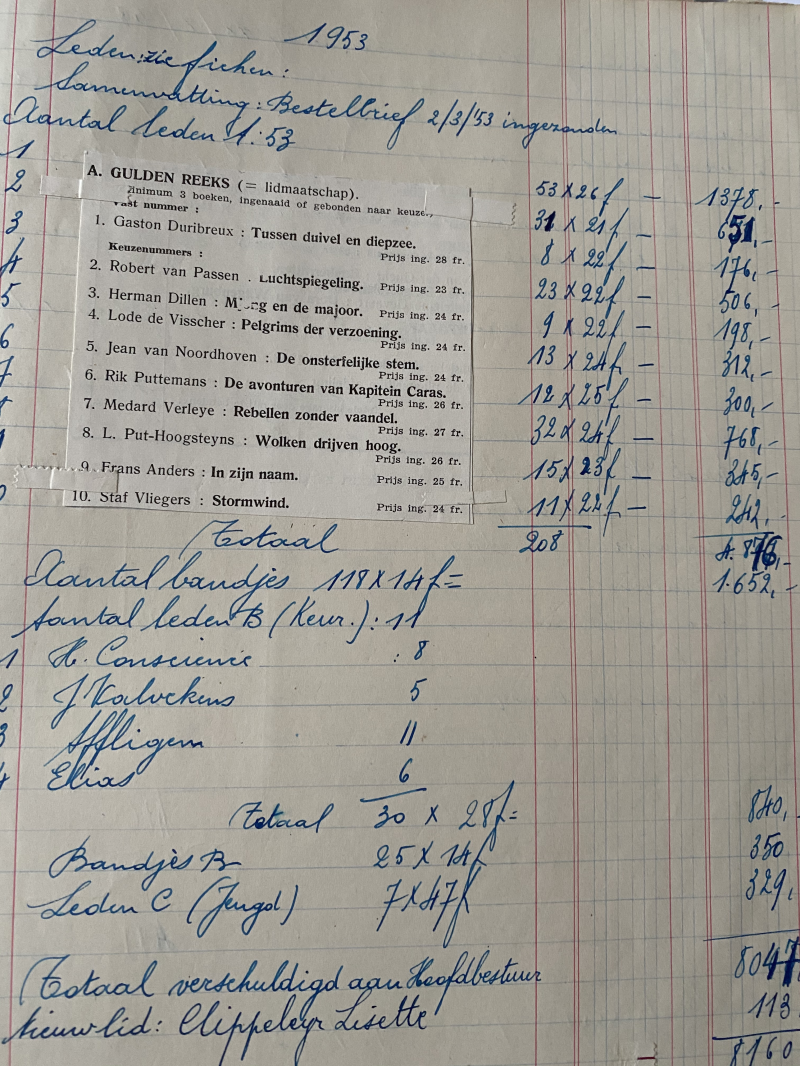 1953
Leden: zie fichen:
Samenvatting: Bestelbrief 2/3/'53 ingezonden
Aantal leden A: 53
A. GULDEN REEKS (= lidmaatschap).
Minimum 3 boeken, ingenaaid of gebonden naar keuze.
Vast nummer :
1 1. Gaston Duribreux : Tussen duivel en diepzee. 53 x 26 f — 1378,-
Prijs ing. 28 fr.
Keuzenummers :
2 2. Robert van Passen : Luchtspiegeling. 31 x 21 f — 651,-
Prijs ing. 23 fr.
3 3. Herman Dillen : en de majoor. 8 x 22 f — 176,-
Prijs ing. 24 fr.
4 4. Lode de Visscher : Pelgrims der verzoening. 23 x 22 f — 506,-
Prijs ing. 24 fr.
5 5. Jean van Noordhoven : De onsterfelijke stem. 9 x 22 f — 198,-
Prijs ing. 24 fr.
6 6. Rik Puttemans : De avonturen van Kapitein Caras. 13 x 24 f — 312,-
Prijs ing. 26 fr.
7 7. Medard Verleye : Rebellen zonder vaandel. 12 x 25 f — 300,-
Prijs ing. 27 fr.
8. L. Put-Hoogsteyns : Wolken drijven hoog. 32 x 24 f — 768,-
Prijs ing. 26 fr.
9. Frans Anders : In zijn naam. 15 x 23 f — 345,-
Prijs ing. 25 fr.
10. Staf Vliegers : Stormwind. 11 x 22 f — 242,-
Prijs ing. 24 fr.
Totaal 208 4.876,-
Aantal bandjes 118 x 14 f = 1.652,-
Aantal leden B (Keur.): 11
1 H. Conscience : 8
2 J Kalvekens 5
3 Affligem 11
4 Elias 6
Totaal 30 x 28 f = 840,-
Bandjes B 25 x 14 f 350
Leden C (Jeugd) 7 x 47 f 329,
Totaal verschuldigd aan Hoofdbestuur 8047
Nieuw lid: Clippeleyr Lisette 113
8160